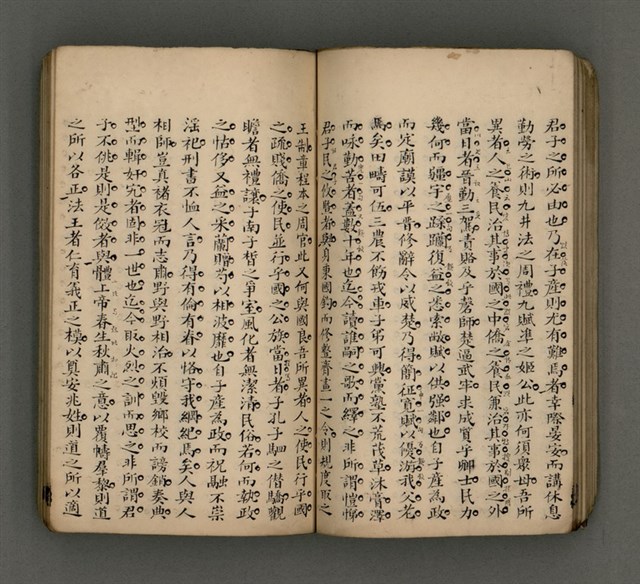 君子之所必由也乃在子產則尤有難焉者幸際晏安而講休息
勤勞之術則九井法之周禮九賦準之姬公此亦何須衆母吾所
異者人之養民治其事於國之中僑之養民兼治其事於國之外
當日者晉勤三駕責賂及乎磬師楚逼武牢求成質乎卿士民力
幾何而疆宇之蹂躪復益之悉索敝賦以供强鄰也自子產為政
而定廟謨以平晉修辭令以威楚乃得簡征寬賦以優游我父老
焉矣田疇可伍三農不飭戎車子弟可興黨塾不荒茂草沐膏澤
而詠勤苦者蓋數十年也迄今讀誰嗣之歌而繹之非所謂愷悌
君子民之攸曁者與身秉國鈞而修整齊畫一之令則規度取之
王制章程本之周官此又何與國良吾所異者人之使民行乎國
之疏賤僑之使民並行乎國之公族當日者子孔子駟之僭驕觀
瞻者無禮讓子南子晳之爭室風化者無潔清民俗若何而執政
之怙侈又益之采蘭贈芍以相波靡也自子產為政而祝融不崇
淫祀刑書不恤人言乃得有倫有脊以恪守我綱紀焉矣人與人
相師豈真褚衣冠而志肅野與野相治不煩毀鄉校而謗銷奏典
型而輯奸宄者固非一世也迄今取火烈之訓而思之非所謂君
子不佻是則是傚者與體上帝春生秋肅之意以覆幬羣黎則道
之所以各正法王者仁育義正之模以奠安兆姓則道之所以適